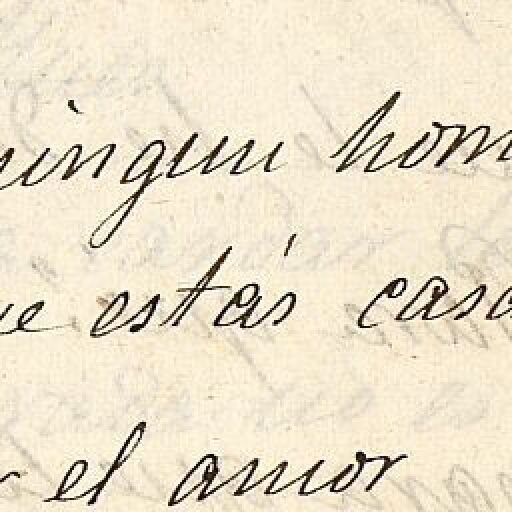 ningun hom
ue estás casa
r el amor